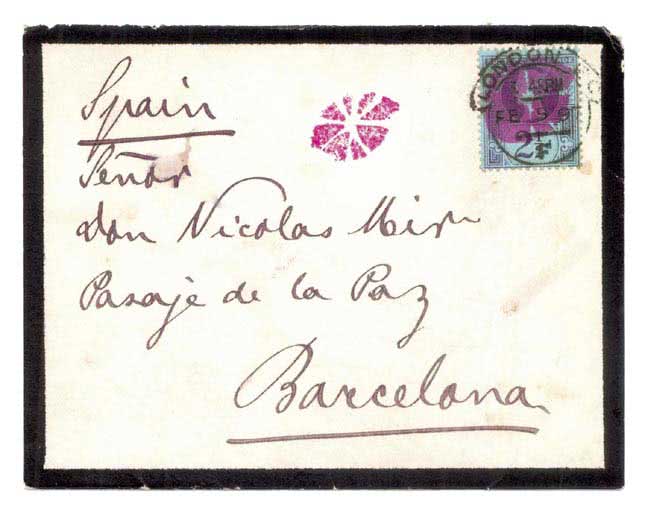 Spain
Señor
Don Nicolas
Pasaje de la Paz
Barcelona
LONDON
FE 5 97
2½